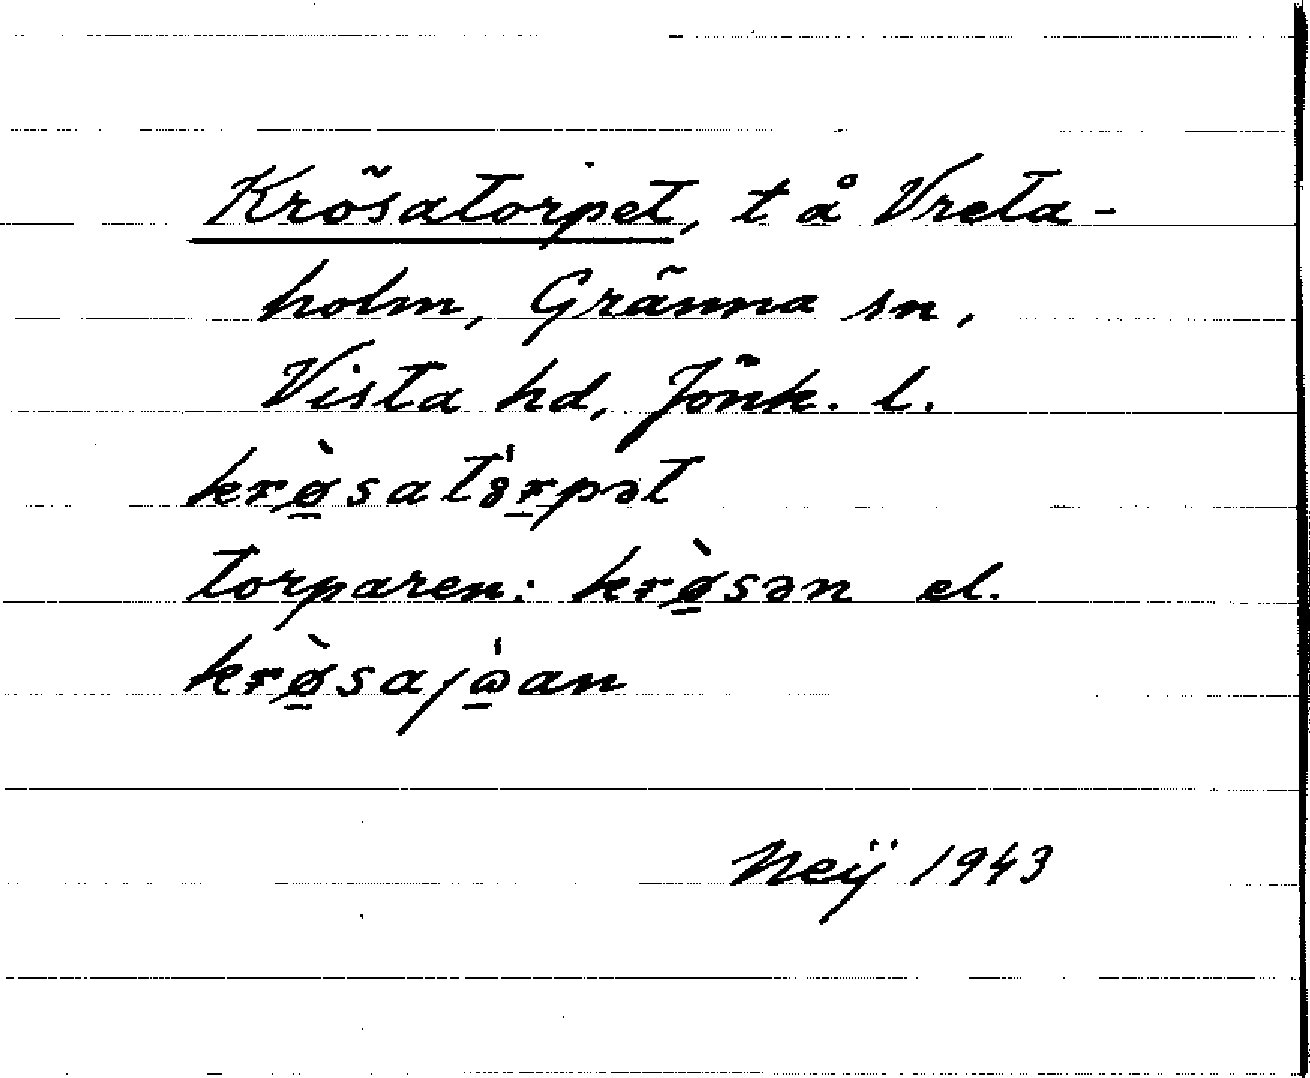 Krösatorpet, t å Vreta-
holm, Gränna sn,
Vista hd, Jönk. l.
krø̱̀satȣṟ̍pət
torparen: krø̱̀sən el.
krø̱̀sajω̱̍an
Neÿ 1943